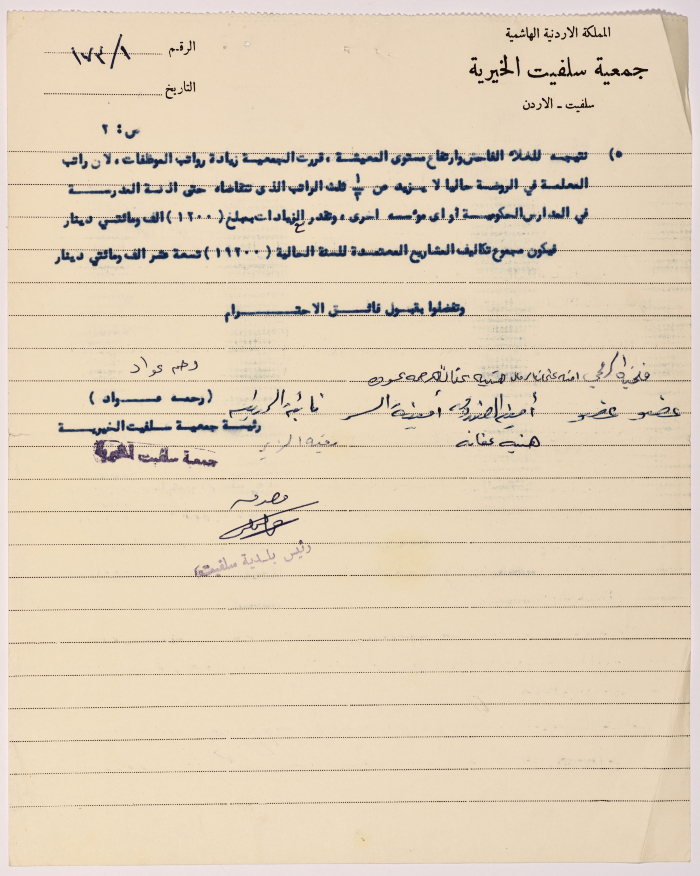 المملكة الاردنية الهاشمية
جمعية سلفيت الخيرية
سلفيت - الاردن
الرقم ١٧٣/١
التاريخ
ص: ٢
٥) نتيجة للغلاء الفاحش وارتفاع مستوى المعيشة ، قررت الجمعية زيادة رواتب الموظفات ، لان راتب
المعلمة في الروضة حاليا لا يزيد عن ١/٣ ثلث الراتب الذى تتقاضاه حتى الذنة المدرسة
في المدارس الحكومية أو اى مؤسسه اخرى ، وتقدر الزيادات بمبلغ ( ١٢٠٠ ) الف ومائتي دينار
فيكون مجموع تكاليف المشاريع المعتمدة للسنة الحالية ( ١٩٢٠٠ ) تسعة عشر الف ومائتي دينار
وتفضلوا بقبول فائق الاحترام
عضو عضو أمينة الصندوق أمينة السر نائبة الرئيسه
هنيه عفانه
رحمه عواد
( رحمه عواد )
رئيسة جمعية سلفيت الخيرية
جمعية سلفيت الخيرية
مصدقه
رئيس بلدية سلفيت